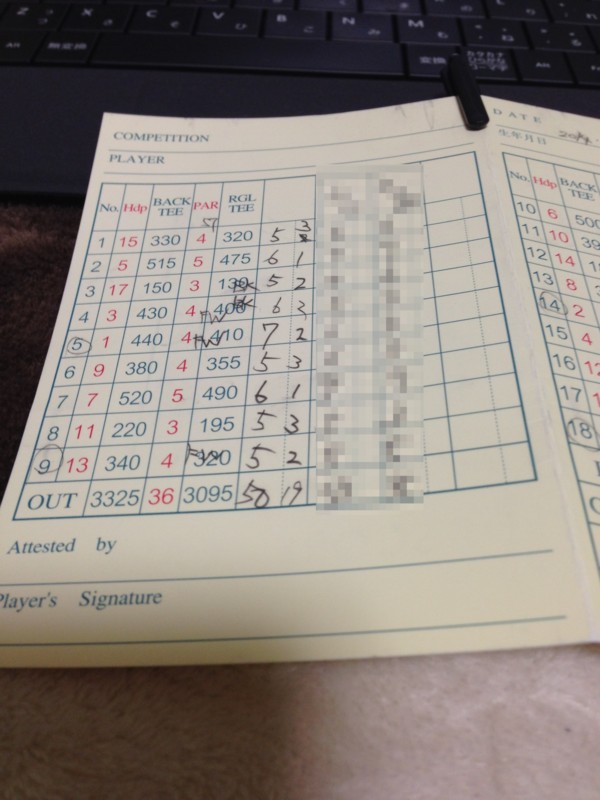 Z つ X さ C そ V ひ B こ N み M も
Alt 無変換 変換 カタカナ ひらがな Alt
COMPETITION
PLAYER
DATE
生年月日
No. Hdp BACK TEE PAR RGL TEE
1 15 330 4 320 5
2 5 515 5 475 6 1
3 17 150 3 130 5 2
4 3 430 4 400 6 3
5 1 440 4 FW 410 7 2
6 9 380 4 355 5 3
7 7 520 5 490 6 1
8 11 220 3 195 5 3
9 13 340 4 320 5 2
OUT 3325 36 3095 50 19
Attested by
Player's Signature
No. Hdp BACK TEE
10 6 500
11 10
12 14
13 8
14 2
15 4
16
17
18